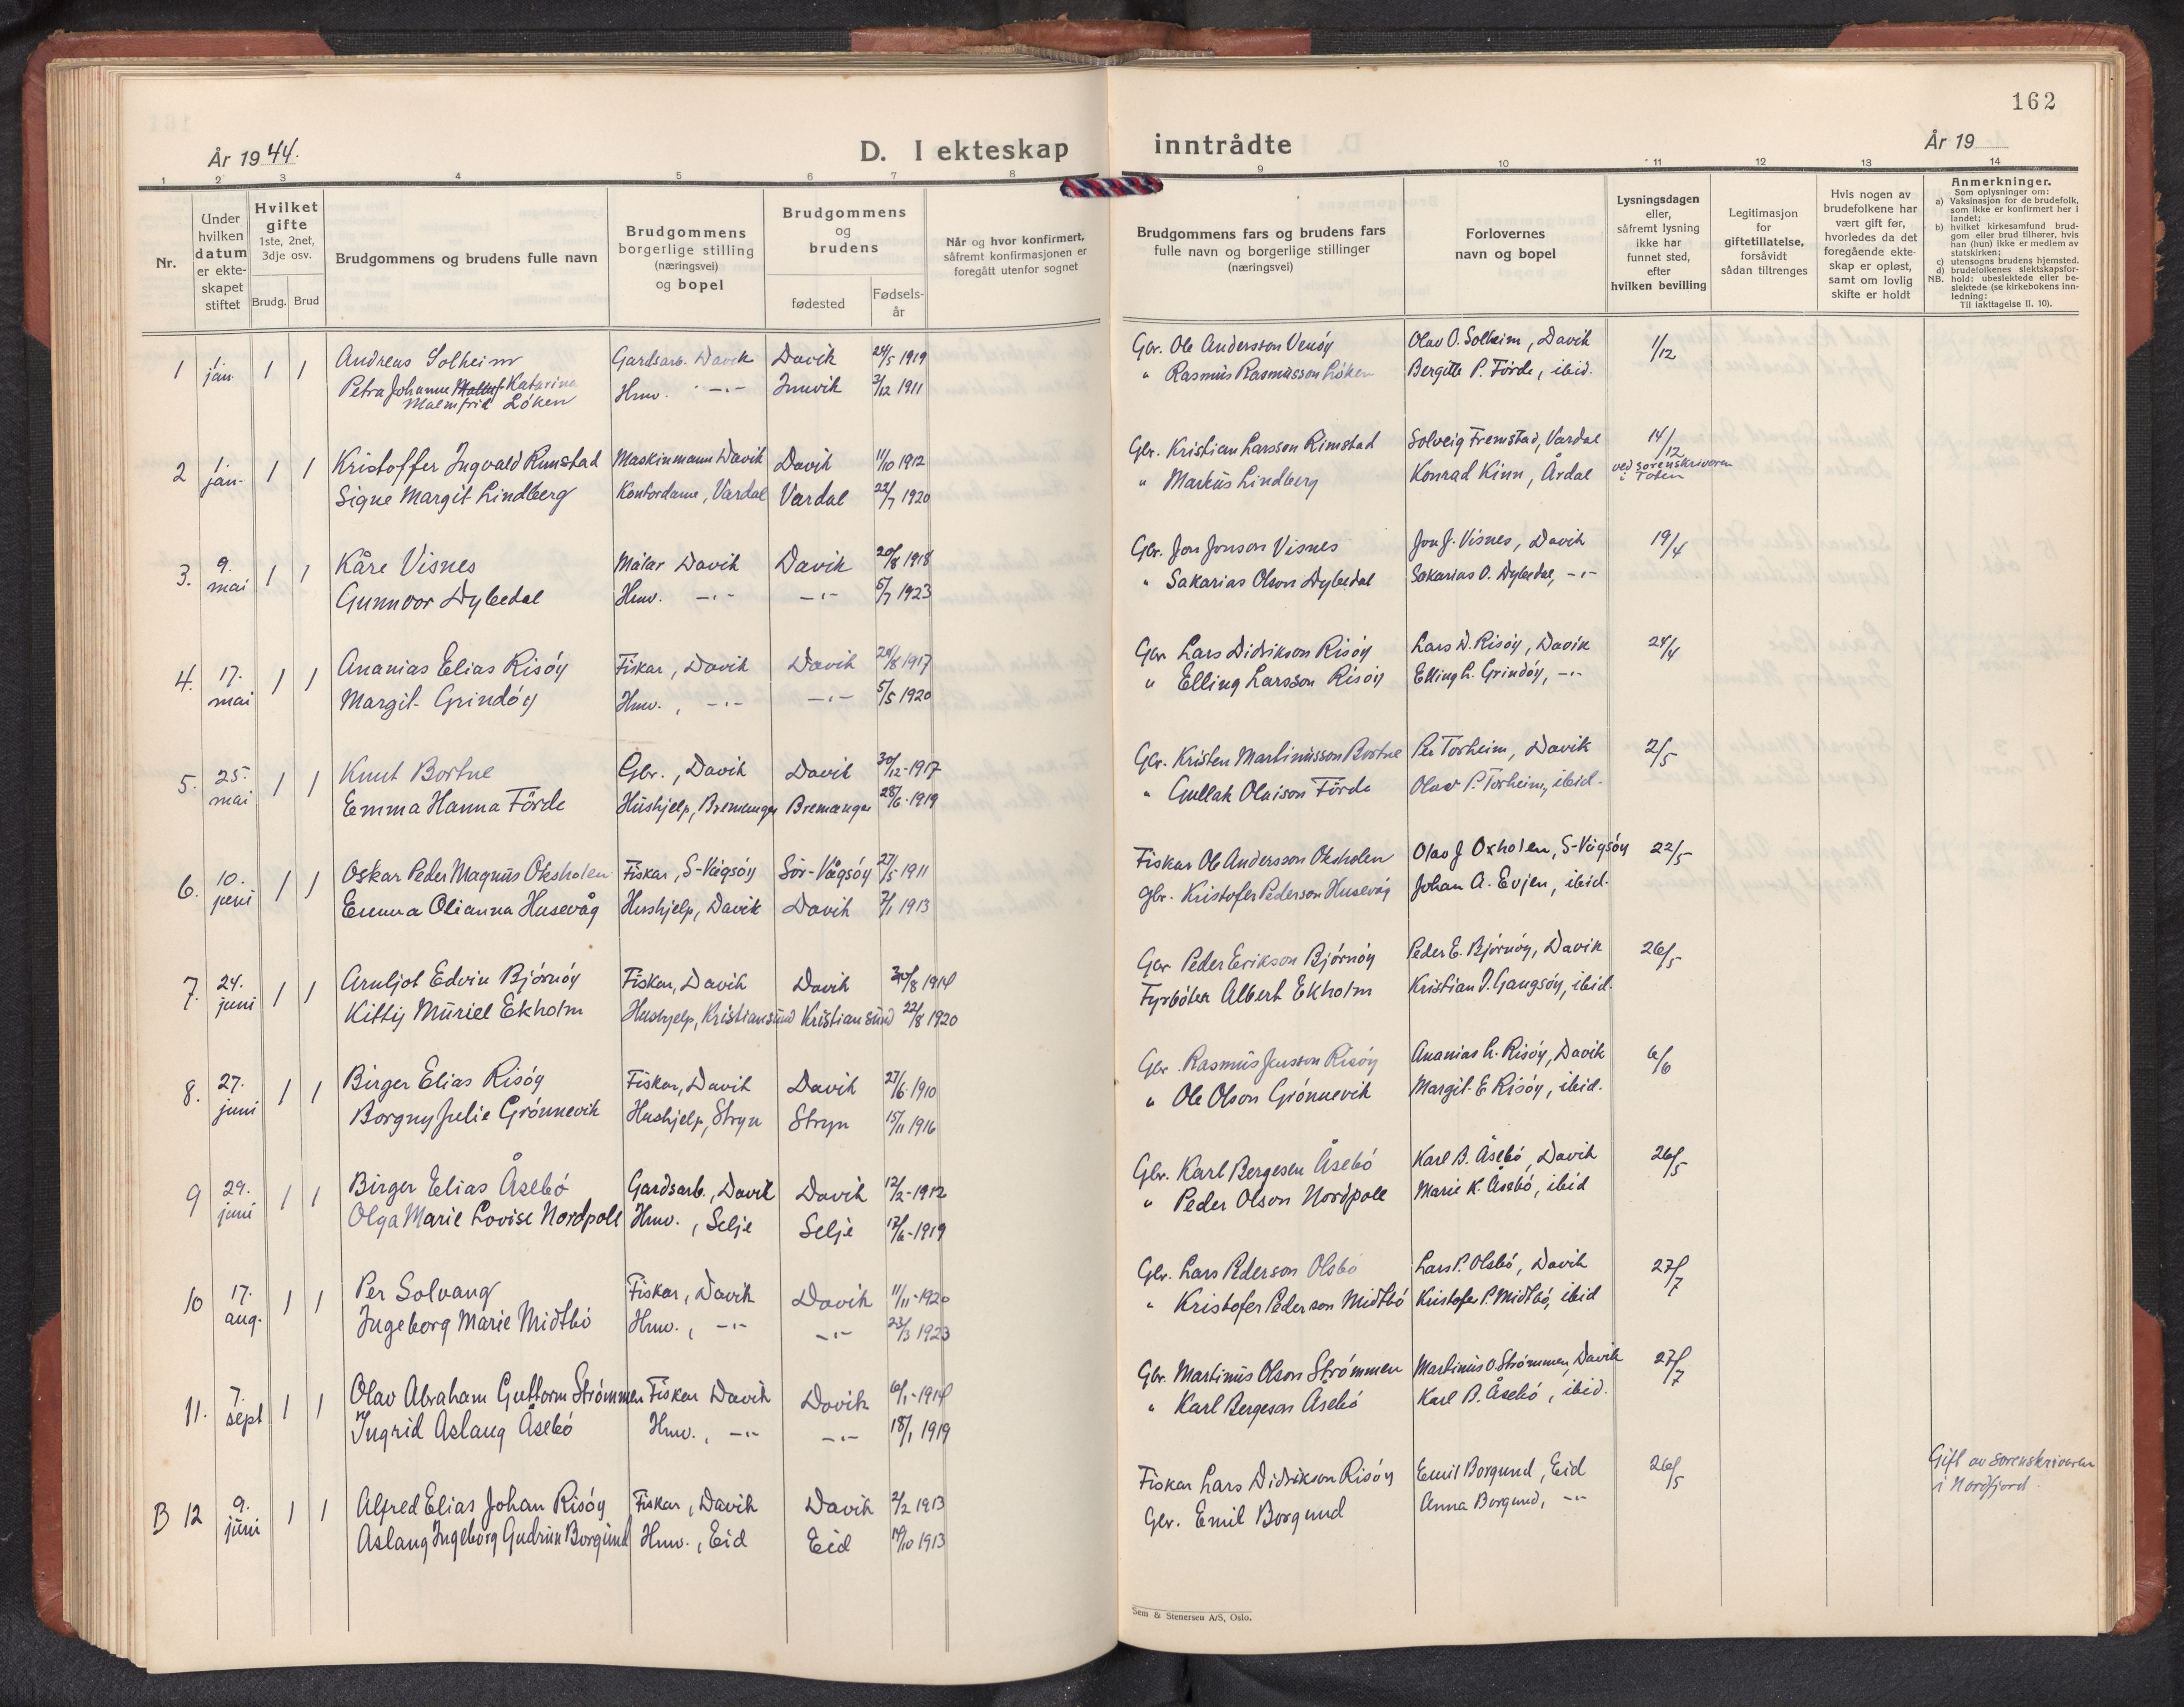 162
År 1944.
D. I ekteskap inntrådte
År 19
1 2 3 4 5 6 7 8 9 10 11 12 13 14
Nr.
Under hvilken datum er ekte-skapet stiftet
Hvilket gifte
1ste, 2net, 3dje osv.
Brudg. Brud
Brudgommens og brudens fulle navn
Brudgommens borgerlige stilling (næringsvei) og bopel
Brudgommens og brudens
fødested
Fødsels-år
Når og hvor konfirmert, såfremt konfirmasjonen er foregått utenfor sognet
Brudgommens fars og brudens fars fulle navn og borgerlige stillinger (næringsvei)
Forlovernes navn og bopel
Lysningsdagen eller, såfremt lysning ikke har funnet sted, efter hvilken bevilling
Legitimasjon for giftetillatelse, forsåvidt sådan tiltrenges
Hvis nogen av brudefolkene har vært gift før, hvorledes da det foregående ekte-skap er opløst, samt om lovlig skifte er holdt
Anmerkninger.
Som oplysninger om:
a) Vaksinasjon for de brudefolk, som ikke er konfirmert her i landet;
b) hvilket kirkesamfund brud-gom eller brud tilhører, hvis han (hun) ikke er medlem av statskirken;
c) utensogns brudens hjemsted.
d) brudefolkenes slektskapsfor-hold: ubeslektede eller be-slektede (se kirkebokens inn-ledning:
NB.
Til iakttagelse II. 10).
1 1 jan. 1 1 Andreas Solheim Gardsarb. Davik Davik 24/5 1919 Gbr. Ole Andersson Venöy Olav O. Solheim, Davik 1/12
Petra Johanne Katarina Malmfrid Löken Hmv. -"- Innvik 3/12 1911 " Rasmus Rasmusson Löken Bergitte P. Förde, ibid.
2 1 jan. 1 1 Kristoffer Ingvald Rimstad Maskinmann Davik Davik 11/10 1912 Gbr. Kristian Larsson Rimstad Solveig Fremstad, Vardal 14/12
Signe Margit Lindberg Kontordame, Vardal Vardal 22/7 1920 " Markus Lindberg Konrad Kinn, Årdal ved sorenskrivaren i Toten
3. 9. mai 1 1 Kåre Visnes Målar Davik Davik 20/8 1918 Gbr. Jon Jonson Visnes Jon J. Visnes, Davik 19/4
Gunnvor Dybedal Hmv. -"- -"- 5/7 1923 " Sakarias Olson Dybedal Sakarias O. Dybedal, -"-
4. 17. mai 1 1 Ananias Elias Risöy Fiskar, Davik Davik 20/8 1917 Gbr Lars Didrikson Risöy Lars D. Risöy, Davik 24/4
Margit Grindöy Hmv., -"- -"- 5/5 1920 " Elling Larsson Risöy Elling L. Grindöy, -"-
5. 25. mai 1 1 Knut Bortne Gbr., Davik Davik 30/12-1917 Gbr. Kristen Martinusson Bortne Per Torheim, Davik 2/5
Emma Hanna Förde Hushjelp, Bremanger Bremanger 28/6-1919 " Gullak Olaison Förde Olav P. Torheim, ibid.
6. 10. juni 1 1 Oskar Peder Magnus Oksholen Fiskar, S-Vågsöy Sör-Vågsöy 27/5 1911 Fiskar Ole Andersson Oksholen Olav J Oxholen, S-Vågsöy 22/5
Emma Olianna Husevåg Hushjelp, Davik Davik 7/1 1913 Gbr. Kristofer Pederson Husevåg Johan A. Evjen, ibid.
7. 24. juni 1 1 Arnljot Edvin Björnöy Fiskar, Davik Davik 30/8 1914 Gbr Peder Erikson Björnöy Peder E. Björnöy, Davik 26/5
Kitty Muriel Ekholm Hushjelp, Kristiansund Kristiansund 22/8 1920 Fyrböter Albert Ekholm Kristian I. Gangsöy, ibid.
8. 27. juni 1 1 Birger Elias Risöy Fiskar, Davik Davik 27/6 1910 Gbr. Rasmus Jensson Risöy Ananias L. Risöy, Davik 6/6
Borgny Julie Grönnevik Hushjelp, Stryn Stryn 15/11 1916 " Ole Olson Grönnevik Margit E Risöy, ibid.
9 29. juni 1 1 Birger Elias Åsebó Gardsarb., Davik Davik 12/2-1912 Gbr. Karl Bergesen Åsebó Karl B. Åsebó, Davik 26/5
Olga Marie Lovise Nordpoll Hmv., Selje Selje 17/6-1919 " Peder Olson Nordpoll Marie K. Åsebó, ibid
10 17. aug. 1 1 Per Solvang Fiskar, Davik Davik 11/11-1920 Gbr. Lars Pederson Olsbó Lars P. Olsbó, Davik 27/7
Ingeborg Marie Midtbó Hmv., -"- -"- 23/3 1923 " Kristofer Pederson Midtbó Kristofer P. Midtbó, ibid
11. 7. sept 1 1 Olav Abraham Guttorm Strömmen Fiskar Davik Davik 6/1-1914 Gbr. Martinus Olson Strömmen Martinus O. Strömmen, Davik 27/7
Ingrid Aslaug Åsebó Hmv., -"- -"- 18/1 1919 " Karl Bergeson Åsebó Karl B. Åsebó, ibid.
B 12 9. juni 1 1 Alfred Elias Johan Risöy Fiskar, Davik Davik 2/2 1913 Fiskar Lars Didrikson Risöy Emil Borgund, Eid 26/5 Gift av sorenskrivaren i Nordfjord.
Aslaug Ingeborg Gudrun Borgund Hmv., Eid Eid 14/10 1913 Gbr. Emil Borgund Anna Borgund, -"-
Sem & Stenersen A/S, Oslo.